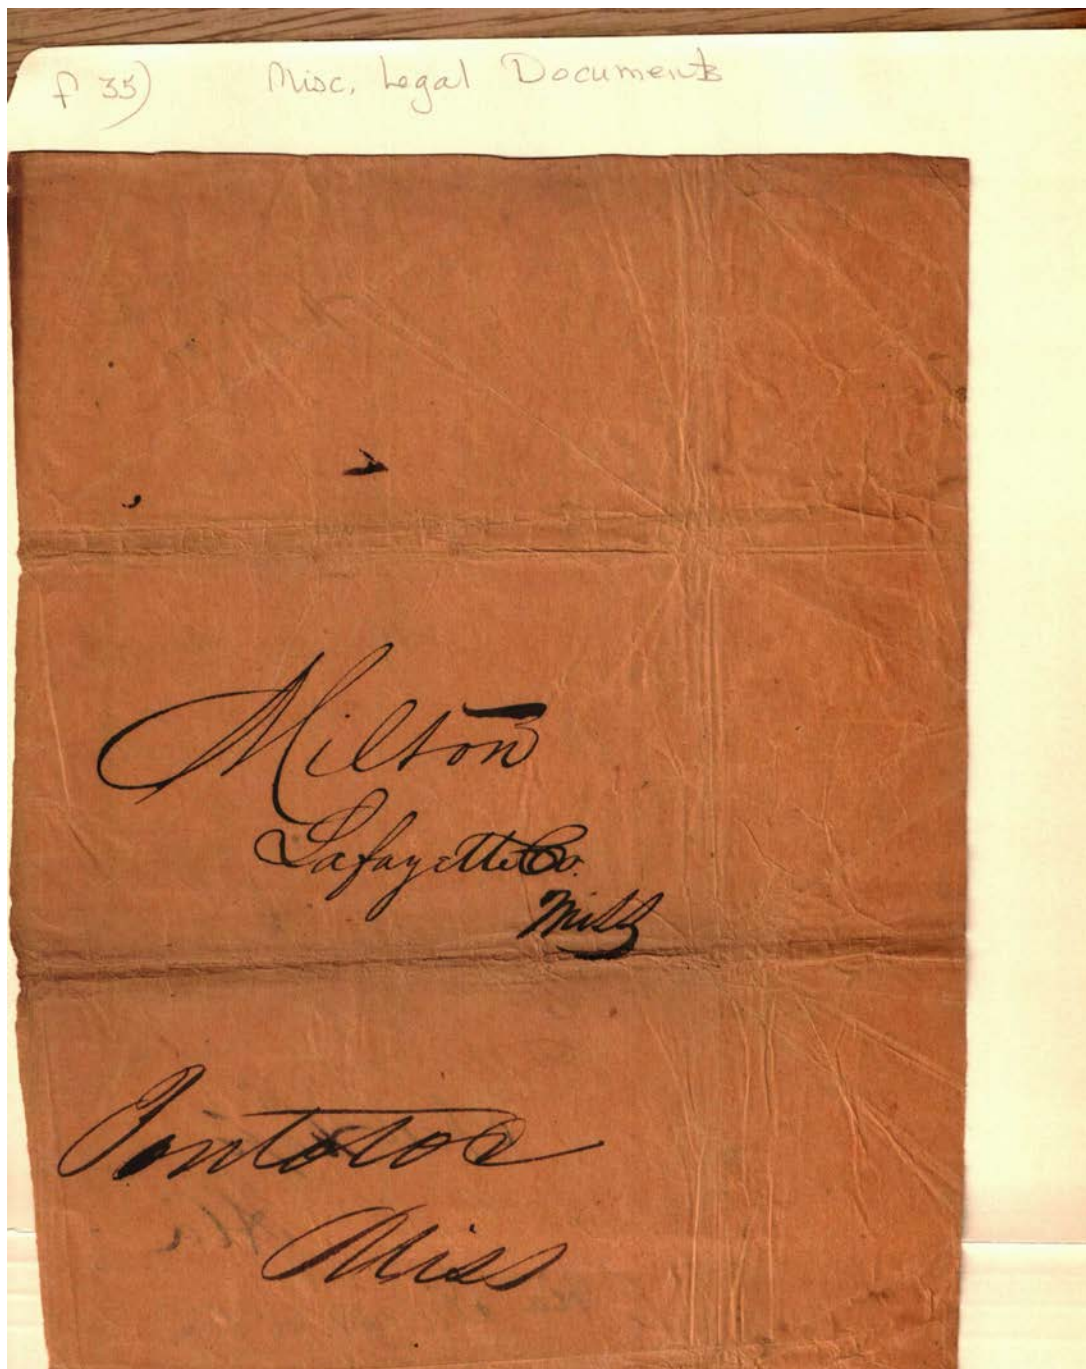 f 35) Misc. Legal Documents
Milton
Lafayette Co.
Miss
Pontotoc
Miss